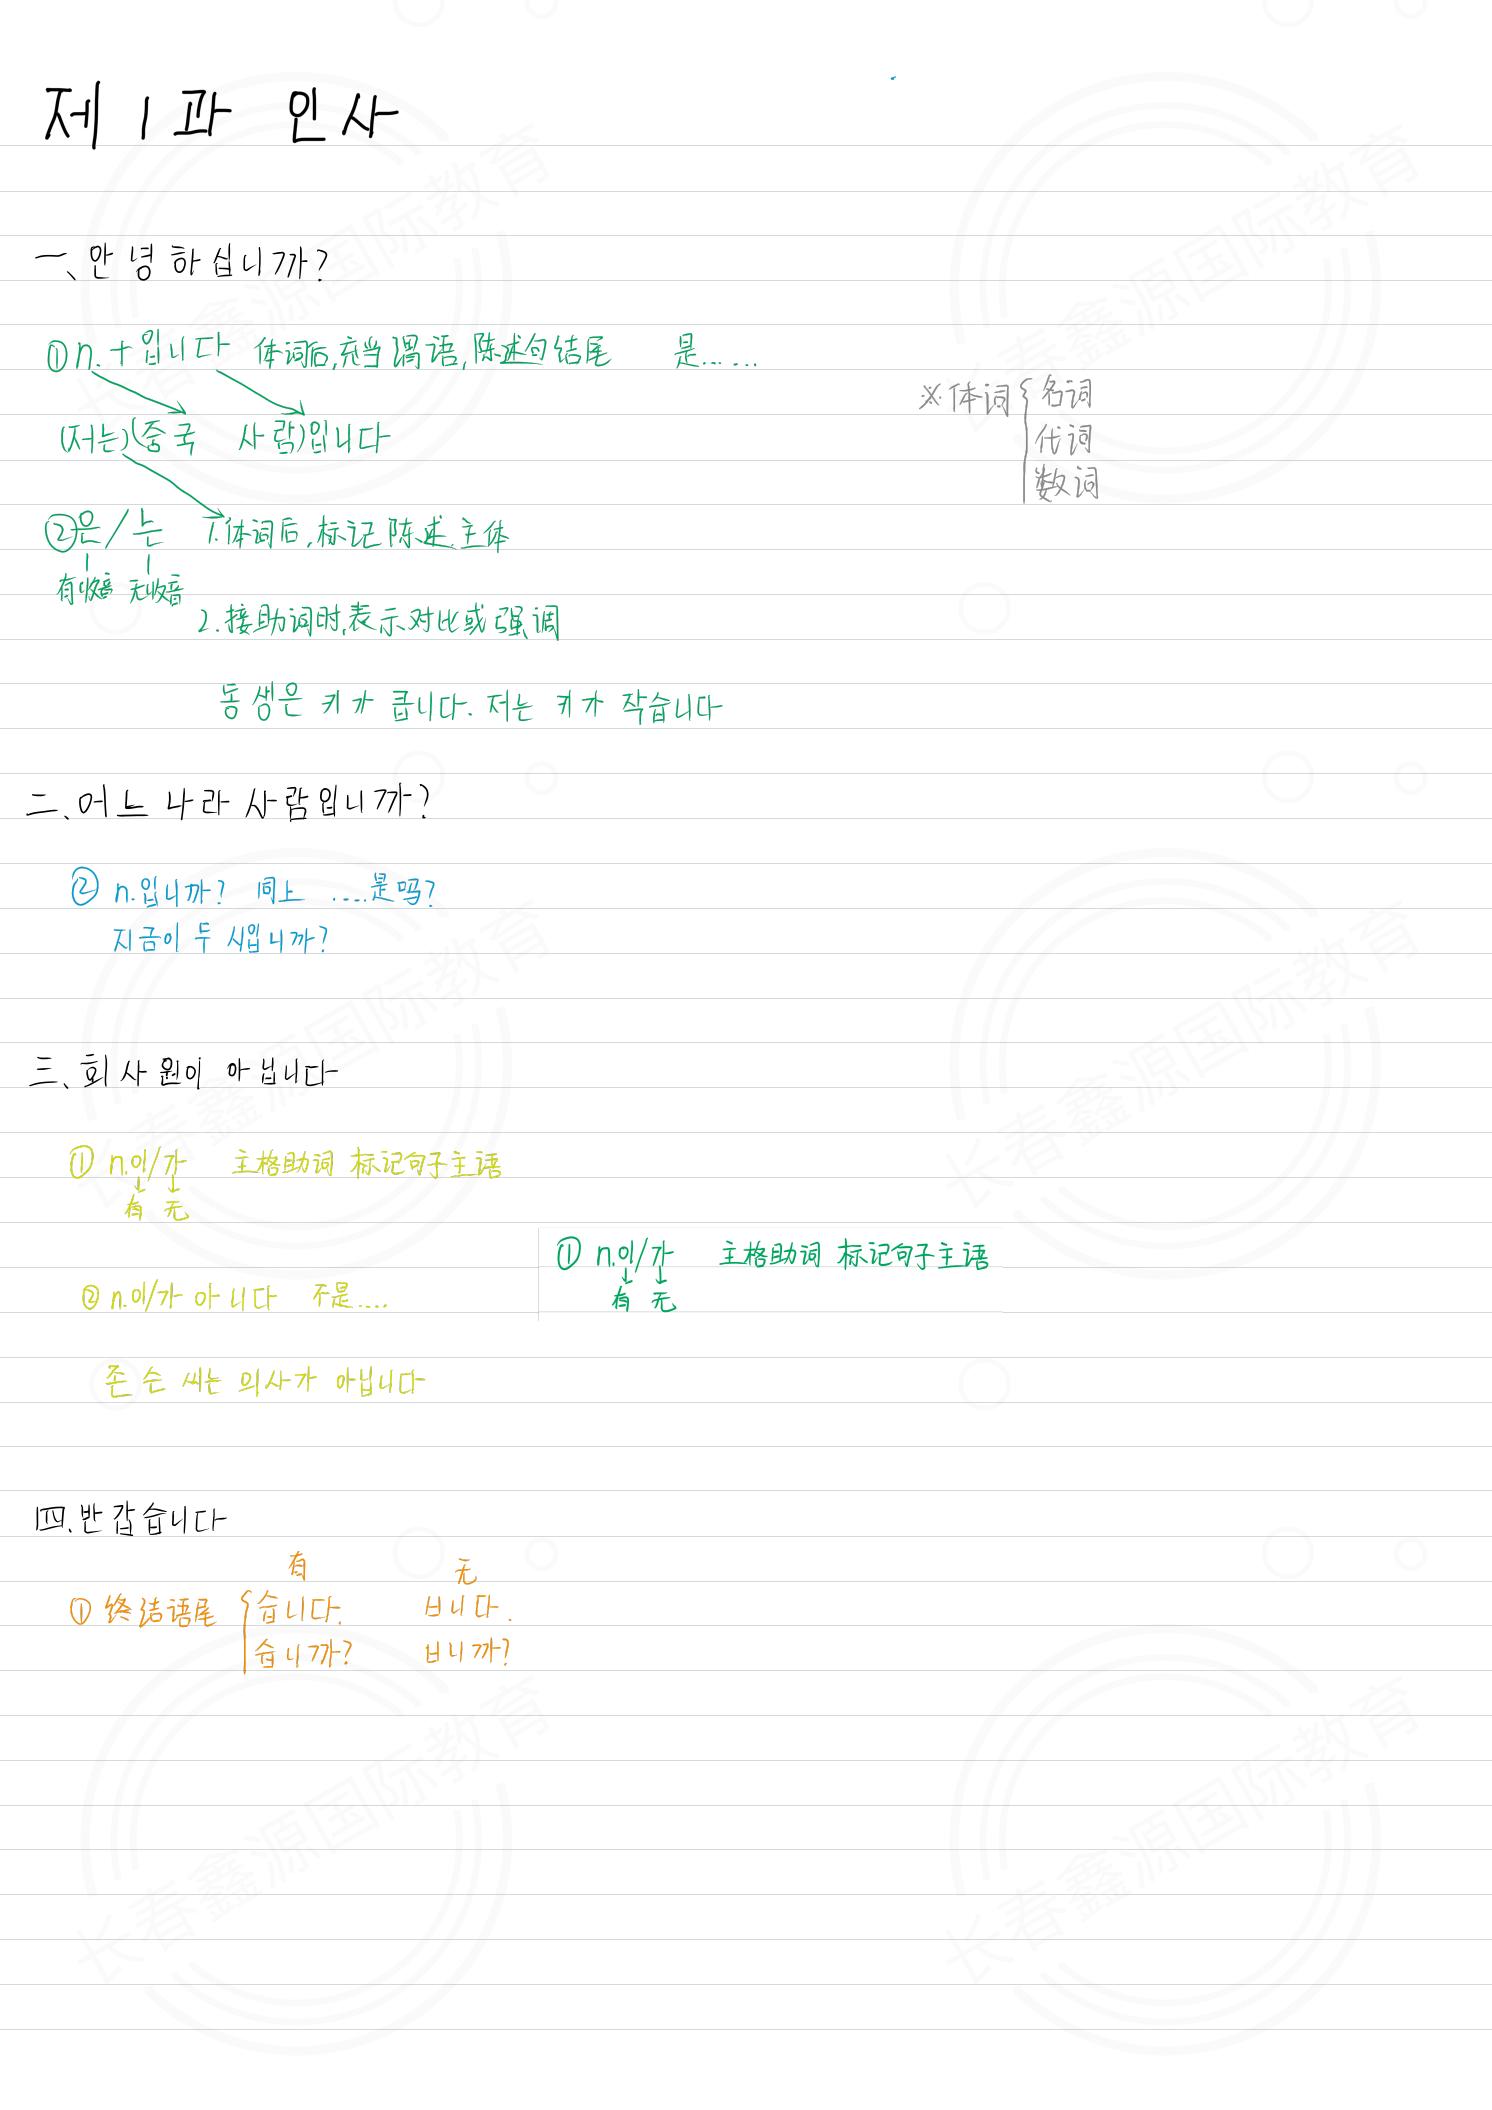 제 1 과 인사
一、안녕하십니까?
① n.+입니다 体词后,充当谓语,陈述句结尾 是……
(저는)(중국 사람)입니다
※体词{名词
代词
数词
②은/는 1.体词后,标记陈述主体
有收音 无收音
2.接助词时,表示对比或强调
동생은 키가 큽니다. 저는 키가 작습니다
二、어느 나라 사람입니까?
② n.입니까? 同上 ....是吗?
지금이 두 시입니까?
三、회사원이 아닙니다
① n.이/가 主格助词 标记句子主语
有 无
① n.이/가 主格助词 标记句子主语
有 无
② n.이/가 아니다 不是....
존슨 씨는 의사가 아닙니다
四.반갑습니다
有 无
① 终结语尾 {습니다. ㅂ니다.
습니까? ㅂ니까?
长春鑫源国际教育
长春鑫源国际教育
长春鑫源国际教育
长春鑫源国际教育
长春鑫源国际教育
长春鑫源国际教育